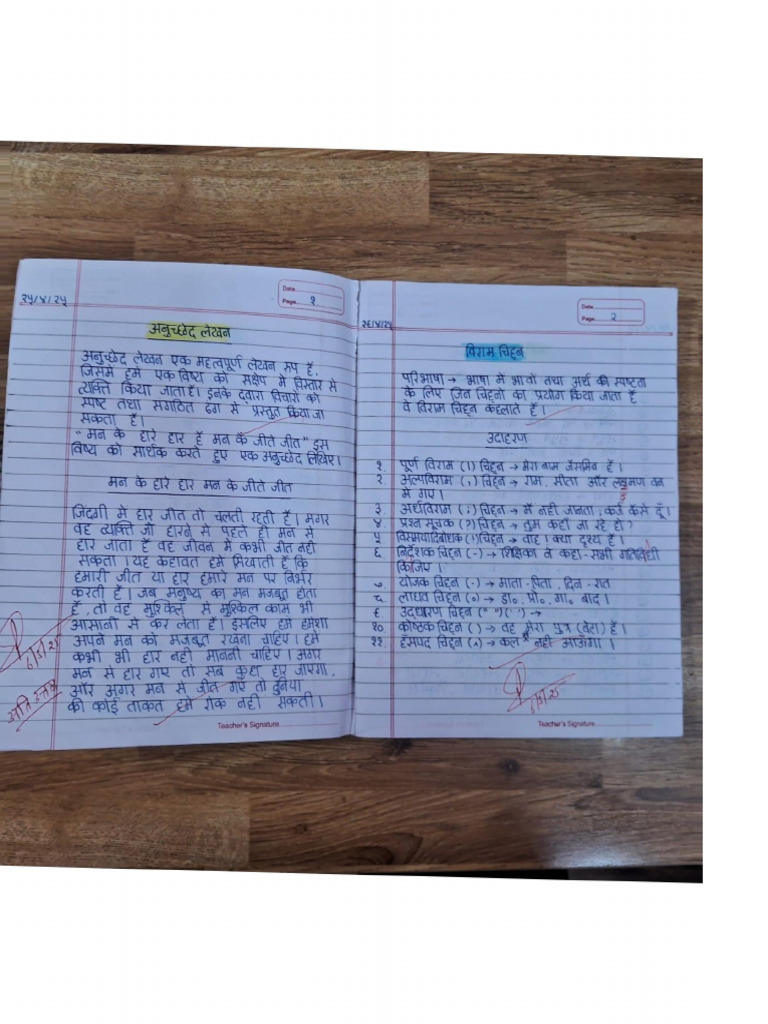 Date
Page १
२५/४/२५
अनुच्छेद लेखन
अनुच्छेद लेखन एक महत्वपूर्ण लेखन रूप है,
जिसमें हमें एक विषय को संक्षेप में विस्तार से
व्यक्ति किया जाता है। इनके द्वारा विचारों को
स्पष्ट तथा संगठित ढंग से प्रस्तुत किया जा
सकता है।
"मन के हारे हार है मन के जीते जीत" इस
विषय को सार्थक करते हुए एक अनुच्छेद लिखिए।
मन के हारे हार मन के जीते जीत
जिंदगी में हार जीत तो चलती रहती है। मगर
वह व्यक्ति जो हारने से पहले ही मन से
हार जाता है वह जीवन में कभी जीत नही
सकता। यह कहावत हमे सिखाती है कि
हमारी जीत या हार हमारे मन पर निर्भर
करती है। जब मनुष्य का मन मजबूत होता
है, तो वह मुश्किल से मुश्किल काम भी
आसानी से कर लेता है। इसलिए हमे हमेशा
अपने मन को मजबूत रखना चाहिए। हमे
कभी भी हार नही माननी चाहिए। अगर
मन से हार गए तो सब कुछ हार जाएगा,
और अगर मन से जीत गए तो दुनिया
की कोई ताकत हमे रोक नही सकती।
Teacher's Signature
Date
Page २
२६/४/२५
विराम चिह्न
परिभाषा → भाषा में भावों तथा अर्थ की स्पष्टता
के लिए जिन चिह्नों का प्रयोग किया जाता है
वे विराम चिह्न कहलाते हैं।
उदाहरण
१. पूर्ण विराम (।) चिह्न → मेरा नाम जैसमिन है।
२. अल्पविराम (,) चिह्न → राम, सीता और लक्ष्मण वन
में गए।
३. अर्धविराम (;) चिह्न → मैं नही जानता; कर्ज कैसे दूँ।
४. प्रश्न सूचक (?) चिह्न → तुम कहाँ जा रहे हो?
५ विस्मयादिबोधक (!) चिह्न → वाह! क्या दृश्य है।
६ निर्देशक चिह्न (-) → शिक्षिका ने कहा - सभी गतिविधी
किजिए।
७ योजक चिह्न (-) → माता-पिता, दिन-रात
८ लाघव चिह्न (०) → डा०, प्रो०, गा० बाद।
९ उदधारण चिह्न (" ") (' ') →
१० कोष्ठक चिह्न () → वह मेरा पुत्र (बेटा) है।
११ हँसपद चिह्न (^) → कल मैं नही आऊँगा।
Teacher's Signature
६/५/२५